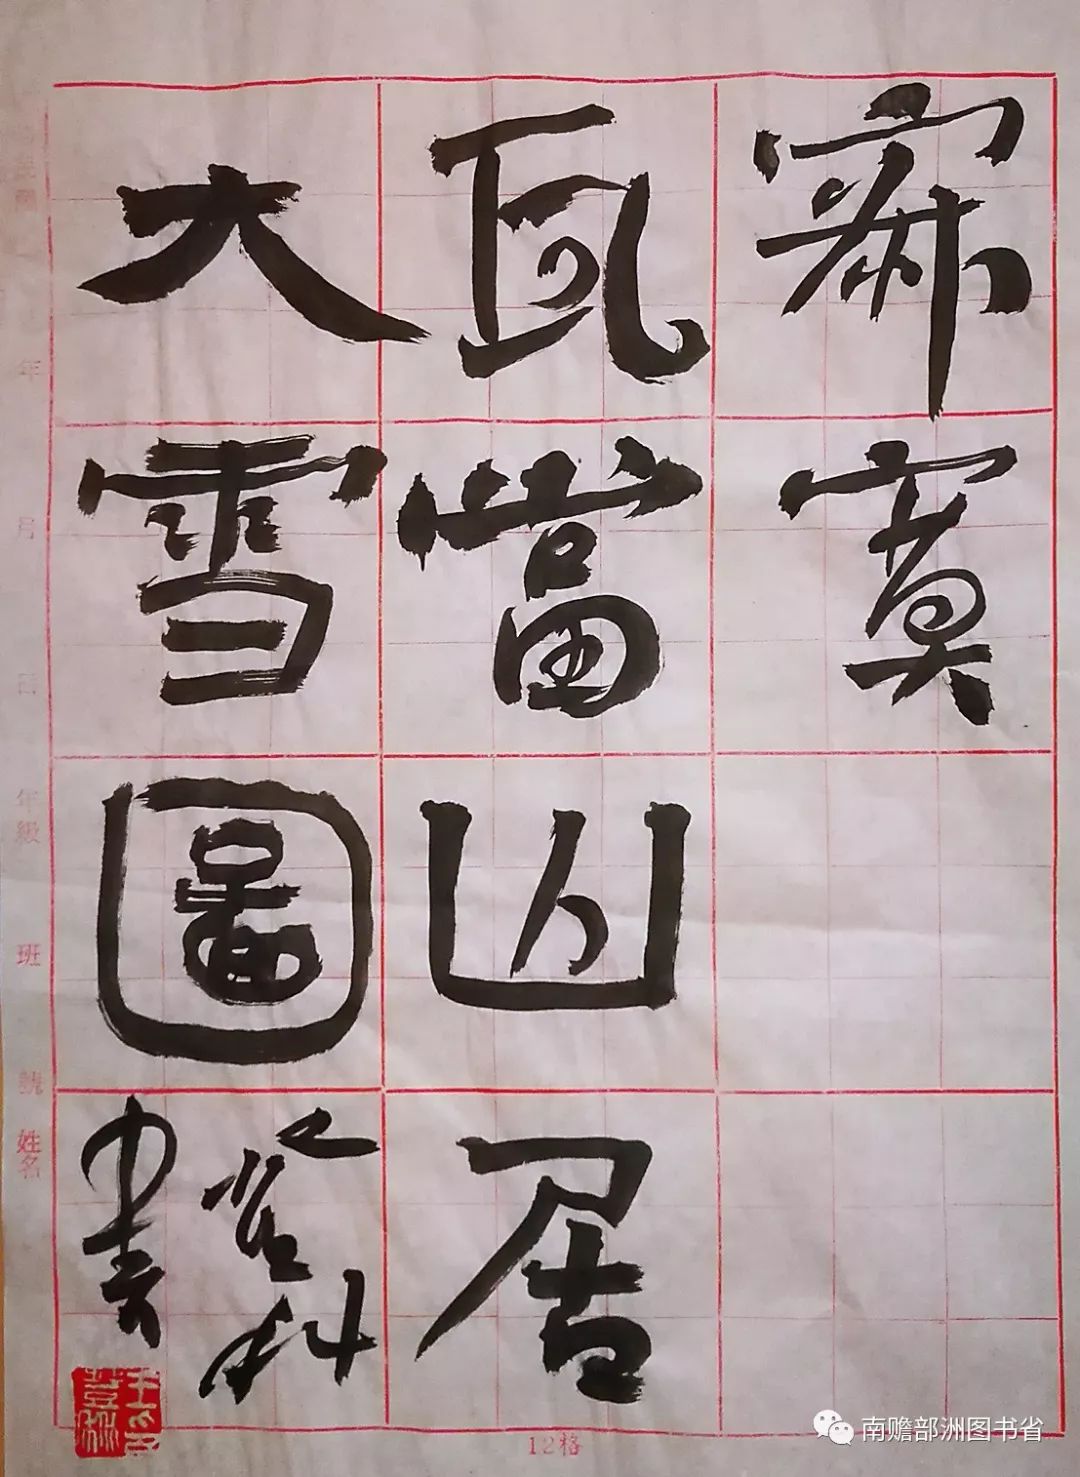 寂寞
瓦當山居
大雪圖
登科
書
年 月 日 年級 班 號 姓名
12格
南赡部洲图书省